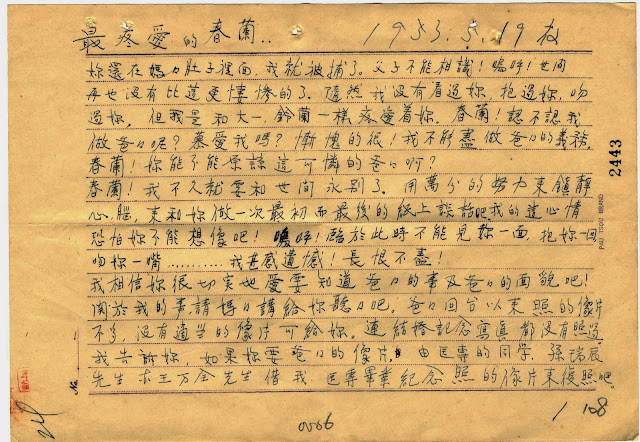 最疼愛的春蘭.. 1953.5.19夜
妳還在媽々肚子裡面、我就被捕了。父子不能相識！嗚呼！世間
再也沒有比這更悽慘的了。雖然我沒有看過妳、抱過妳、吻
過妳、但我是和大一、鈴蘭一樣疼愛着妳。春蘭！認不認我
做爸々呢？慕愛我嗎？慚愧的很！我不能盡做爸々的義務。
春蘭！妳能不能原諒這可憐的爸々啊？
春蘭！我不久就要和世間永別了。用萬分的努力來鎮靜
心腦、來和妳做一次最初而最後的紙上談話吧我的這心情
恐怕妳不能想像吧！嗚呼！臨於此時不能見妳一面、抱妳一回
吻妳一嘴..........我甚感遺憾！長恨不盡！
我相信妳很切实地爱要知道爸々的事及爸々的面貌吧！
関於我的事請媽々講給妳聽々吧。爸々回台以來照的像片
不多、没有適当的像片可給妳。連結婚記念寫真都没有照過
我告訴妳、如果妳要爸々的像片、由医専的同学、孫瑞辰
先生 王万全先生借我医専畢業紀念照的像片來復照吧
2443
No.
0066
1/108